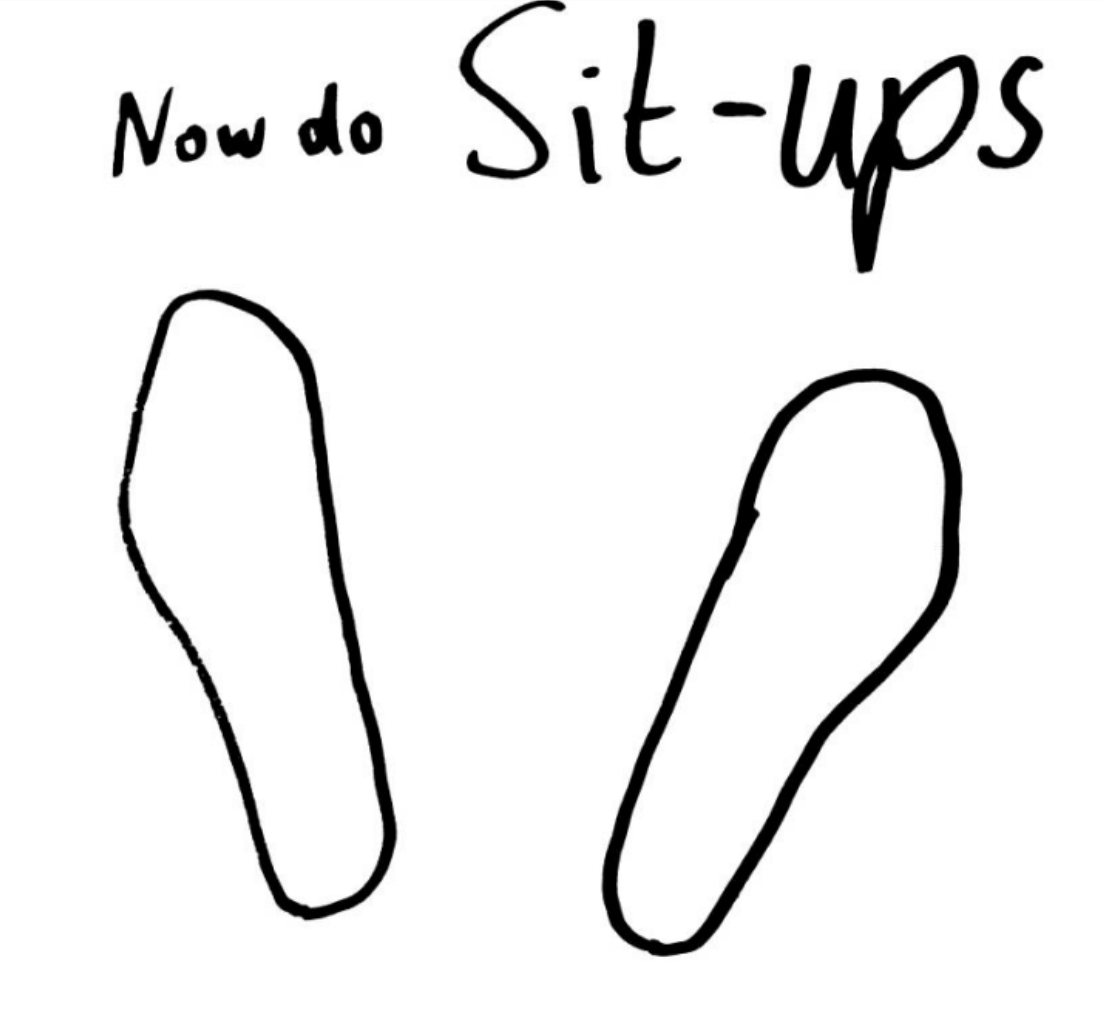 Now do Sit-ups